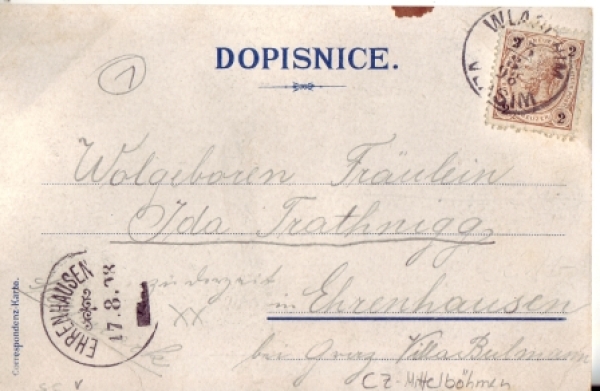 DOPISNICE.
WLASCHIM
VLAŠIM
2 2
2
1
Wolgeboren Fräulein
Ida Trathnigg
zu derzeit
in Ehrenhausen
bei Graz Villa
EHRENHAUSEN
17.8.98
XX
Correspondenz-Karte.
CZ-Mittelböhmen